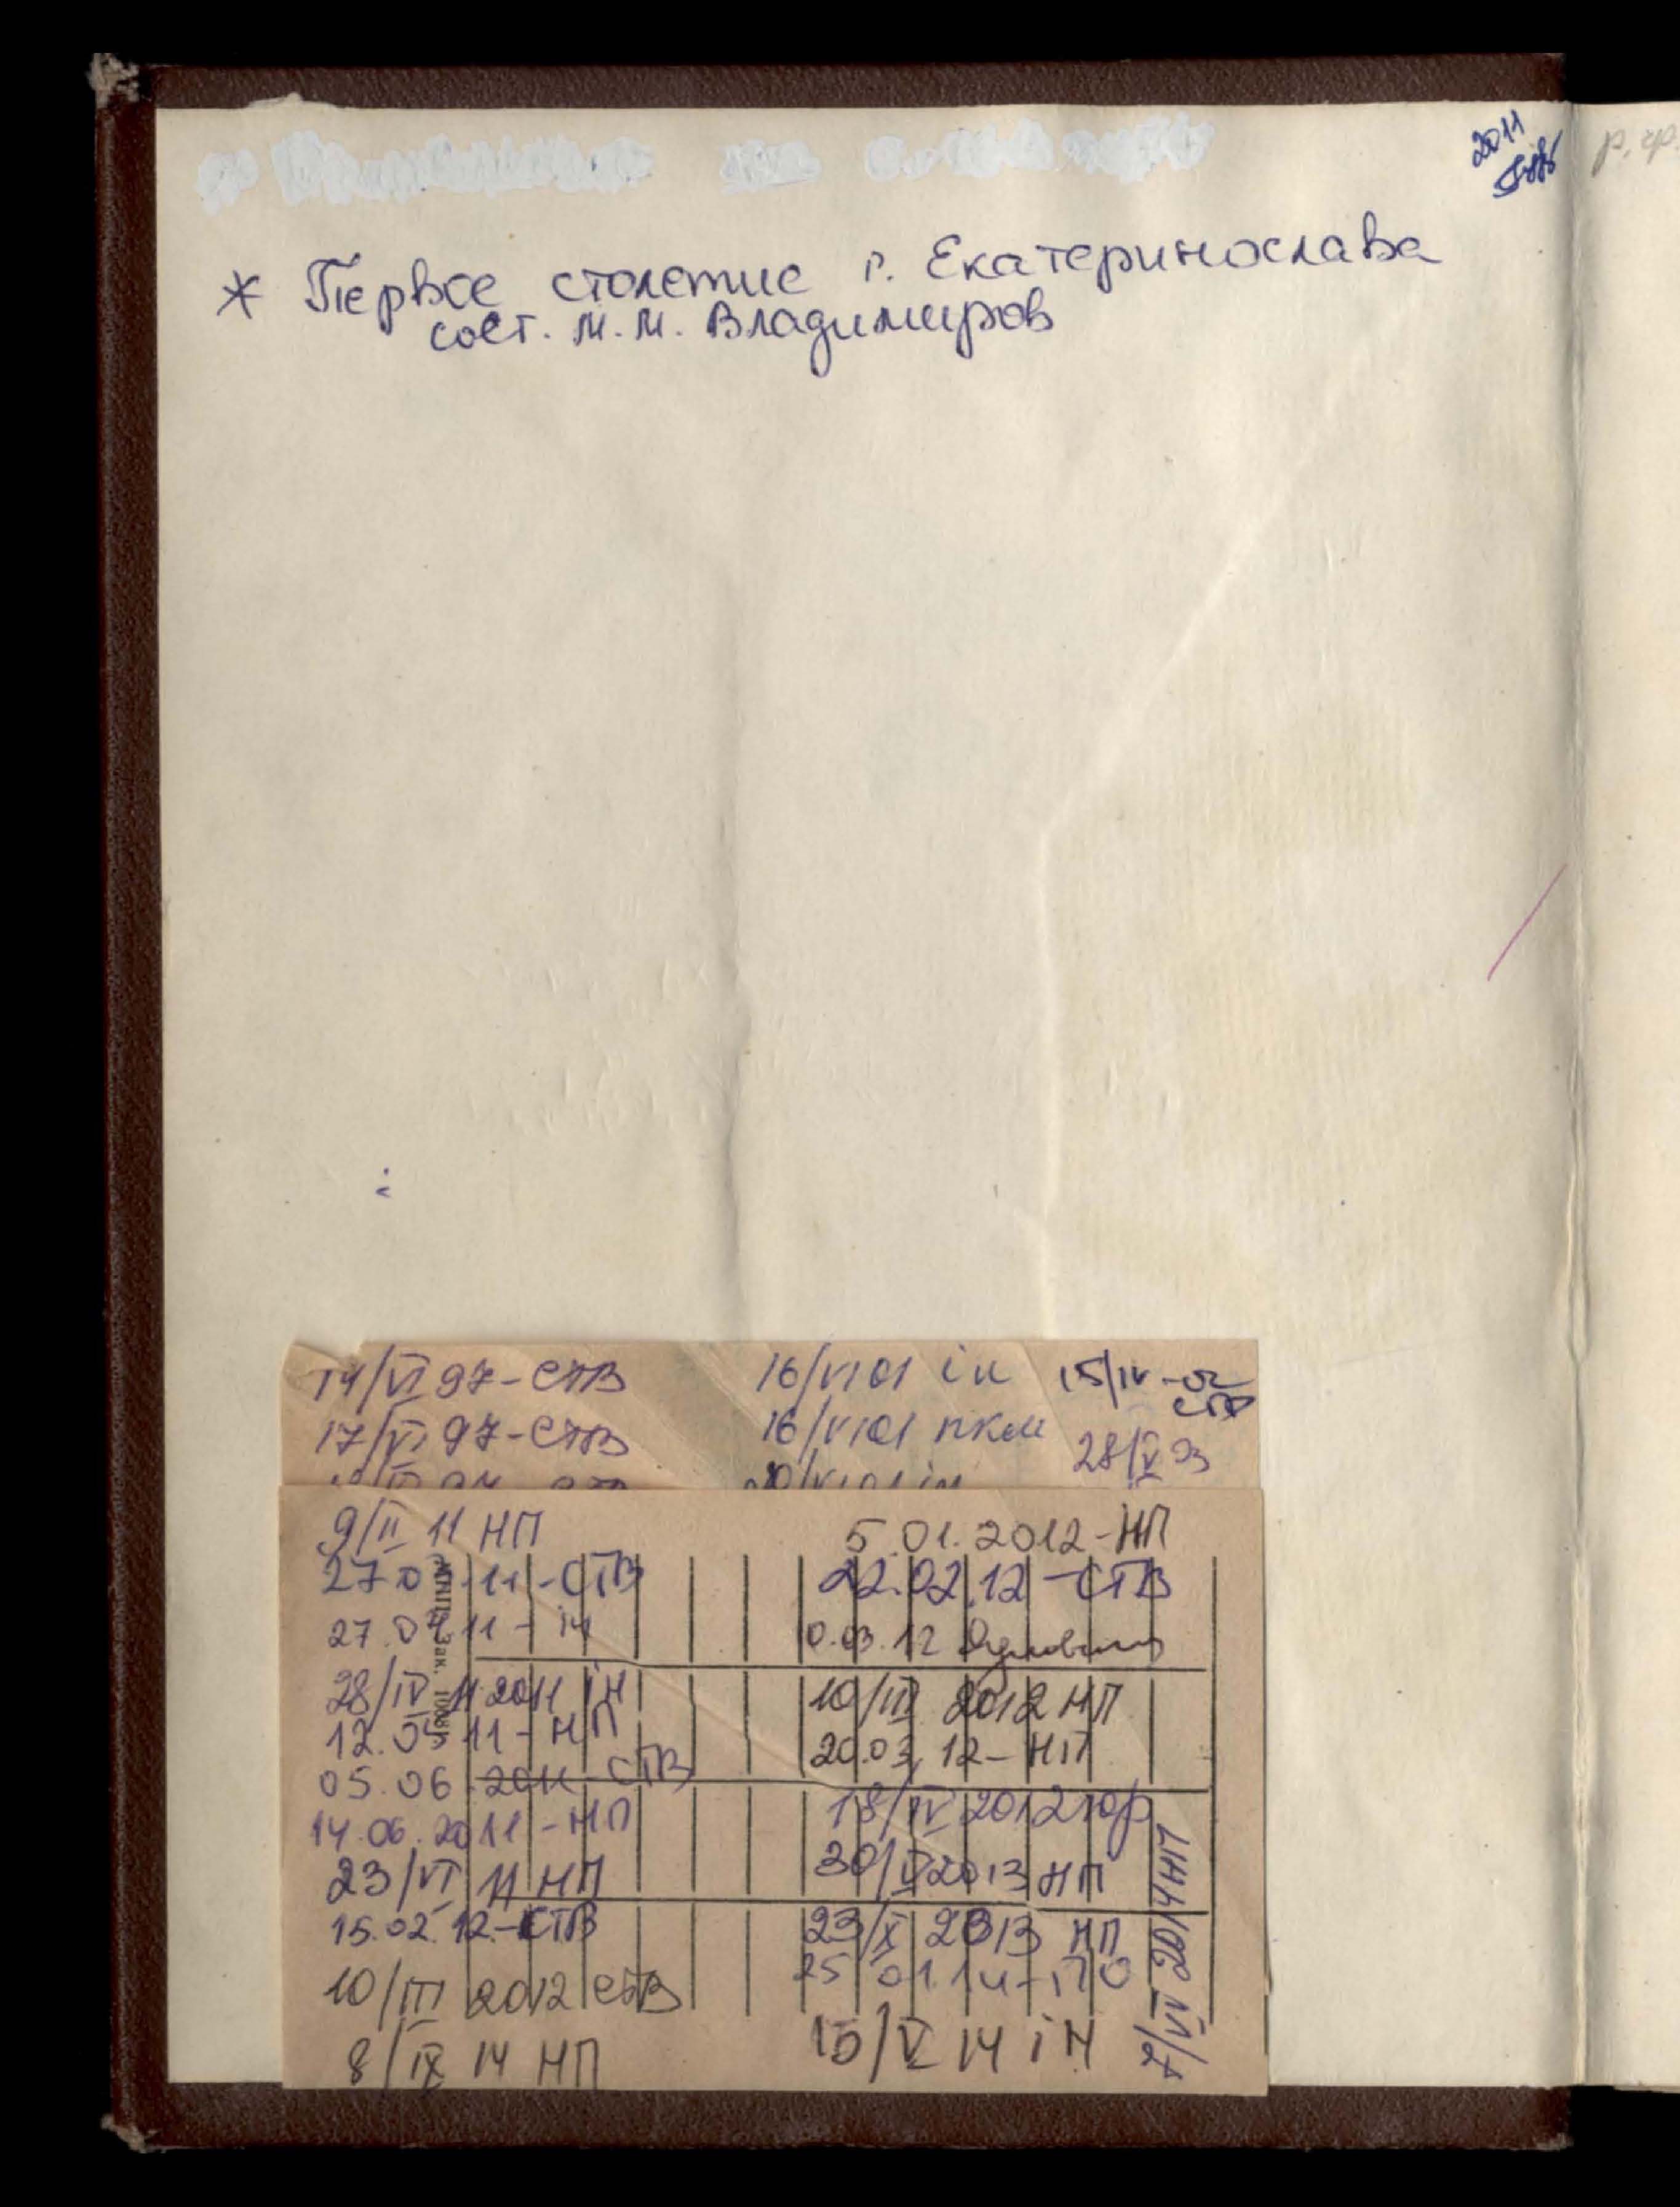 2011
р. ф.
* Первое столетие г. Екатеринослава
сост. М. М. Владимиров
14/VI 97-СТВ
17/VI 97-СТВ
16/VI 01 ін
16/V 01 пкм
15/IV-02
СТВ
28/V 03
9/II 11 НП
11-СТВ
27.04.11 - ін
28/IV 2011 ІН
12.05 11 - НП
05.06.2011 СТВ
14.06.2011 - НП
23/VI 11 НП
15.02.12.-СТВ
10/III 2012 СТВ
8/IX 14 НП
Зак.
5.01.2012-НП
22.02.12-СТВ
0.03.12
10/III 2012 НП
20.03.12-НП
18/IV 2012 юр
30/V 2013 НП
23/X 2013 НП
25 01.14-
15/V 14 ін
7/VI 2014 НП